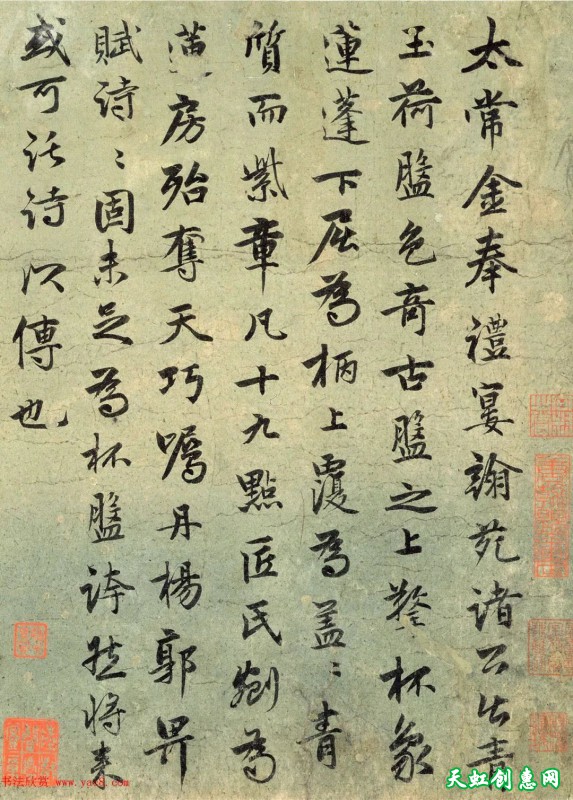 太常金奉禮宴翰苑諸公出青
玉荷盤色奇古盤之上鏨杯象
蓮蓬下屈為柄上覆為蓋〻青
質而紫章凡十九點匠氏剜為
蓮房殆奪天巧囑丹楊郭畀
賦詩〻固未足為杯盤誇然將来
或可託詩以傳也
书法欣赏 www.yac8.com
天虹创惠网